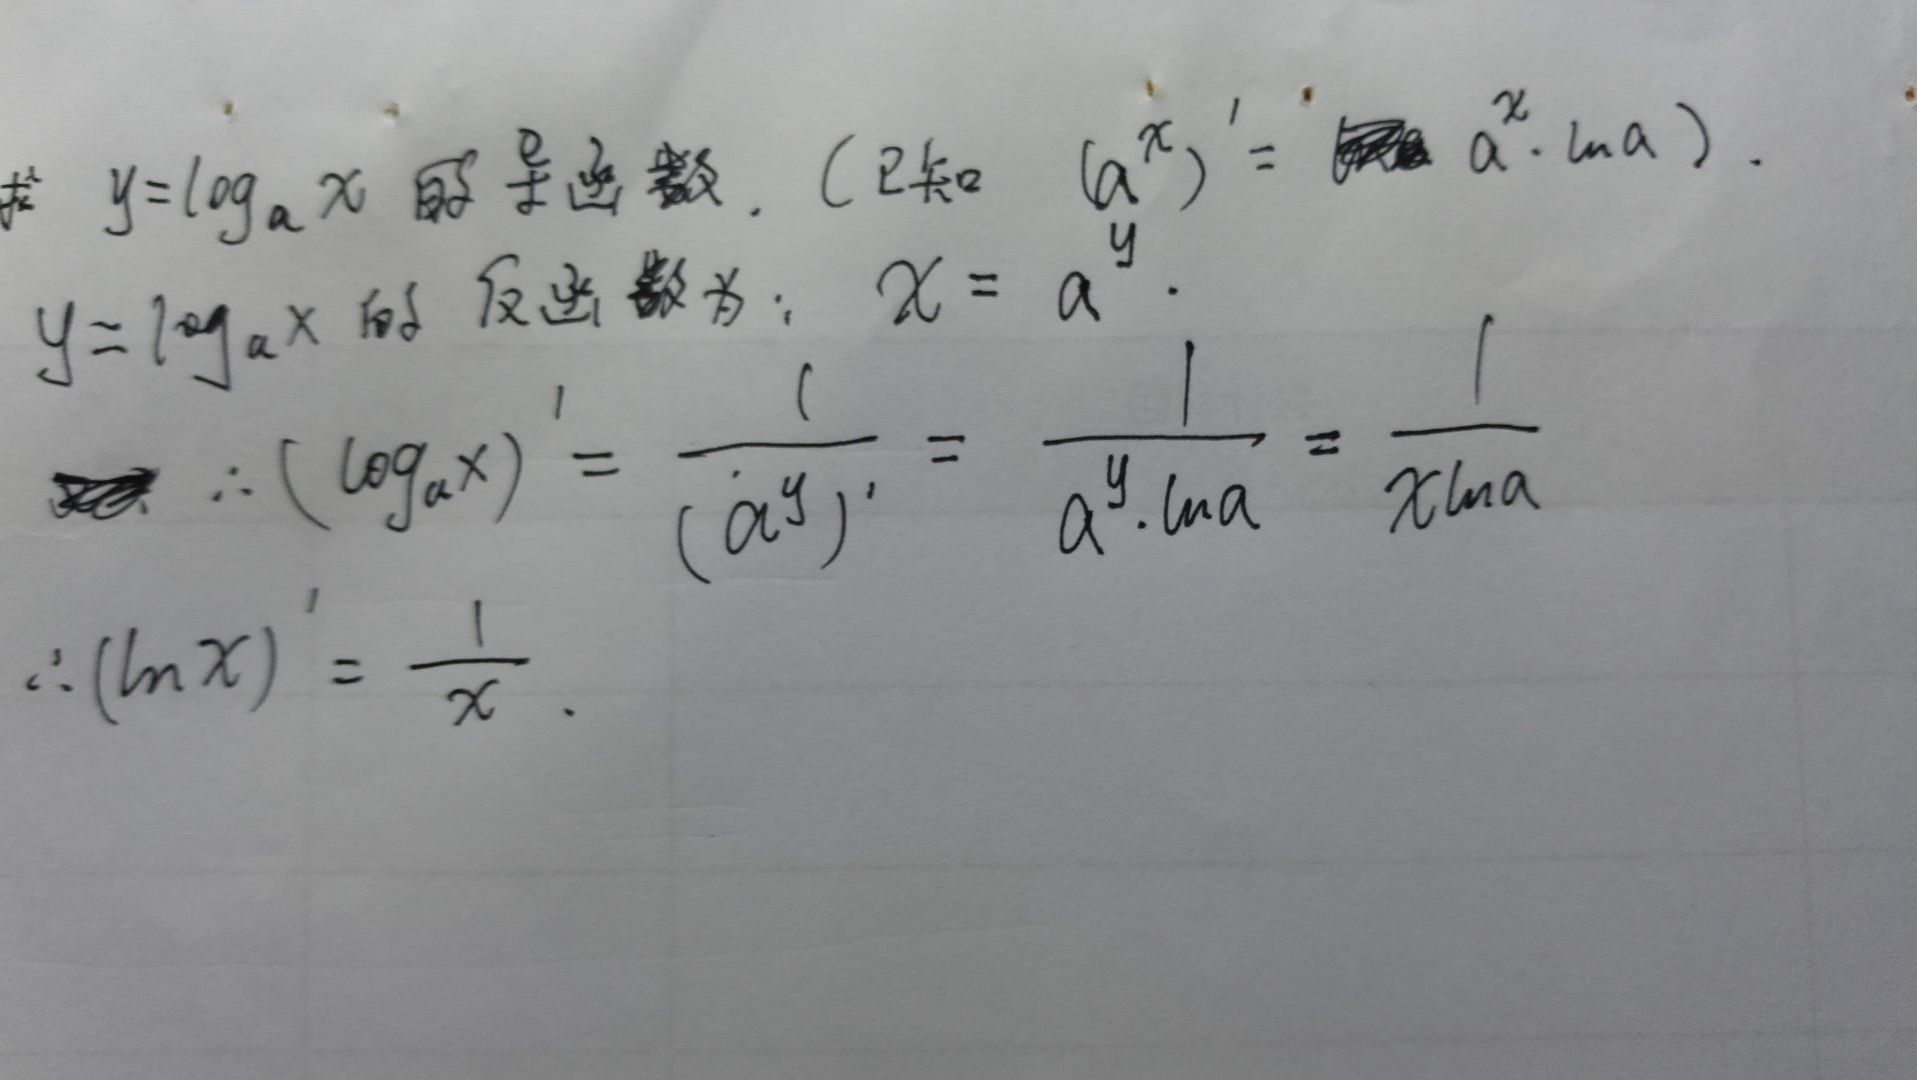 求 y=log_a x 的导函数.(已知 (a^x)' = a^x·lna).
y=log_a x 的反函数为: x = a^y.
∴(log_a x)' = 1/(a^y)' = 1/(a^y·lna) = 1/(xlna)
∴(lnx)' = 1/x.